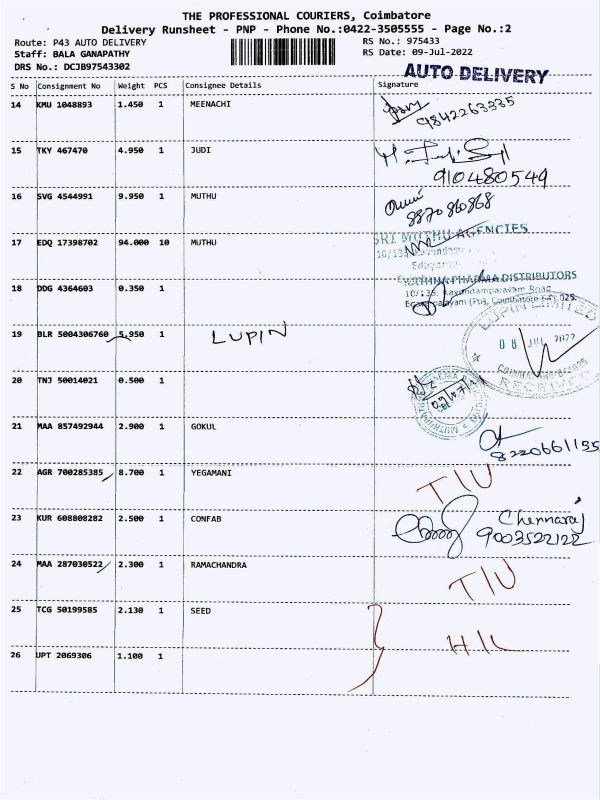 THE PROFESSIONAL COURIERS, Coimbatore
Delivery Runsheet - PNP - Phone No.:0422-3505555 - Page No.:2
Route: P43 AUTO DELIVERY RS No.: 975433
Staff: BALA GANAPATHY RS Date: 09-Jul-2022
DRS No.: DCJB97543302
AUTO DELIVERY
S No Consignment No Weight PCS Consignee Details Signature
14 KMU 1048893 1.450 1 MEENACHI
9842263335
15 TKY 467470 4.950 1 JUDI
910480549
16 SVG 4544991 9.950 1 MUTHU
8870860868
17 EDQ 17398702 94.000 10 MUTHU
SRI MUTHU AGENCIES
18 DDG 4364603 0.350 1
RATHNA PHARMA DISTRIBUTORS
LUPIN LIMITED
19 BLR 5004306760 5.950 1 LUPIN
08 JUL 2022
RECEIVED
20 TNJ 50014021 0.500 1
21 MAA 857492944 2.900 1 GOKUL
8220661155
22 AGR 700285385 8.700 1 YEGAMANI
T/U
23 KUR 608808282 2.500 1 CONFAB
Chennaraj
9003522122
24 MAA 287030522 2.300 1 RAMACHANDRA
T/U
25 TCG 50199585 2.130 1 SEED
26 UPT 2069306 1.100 1